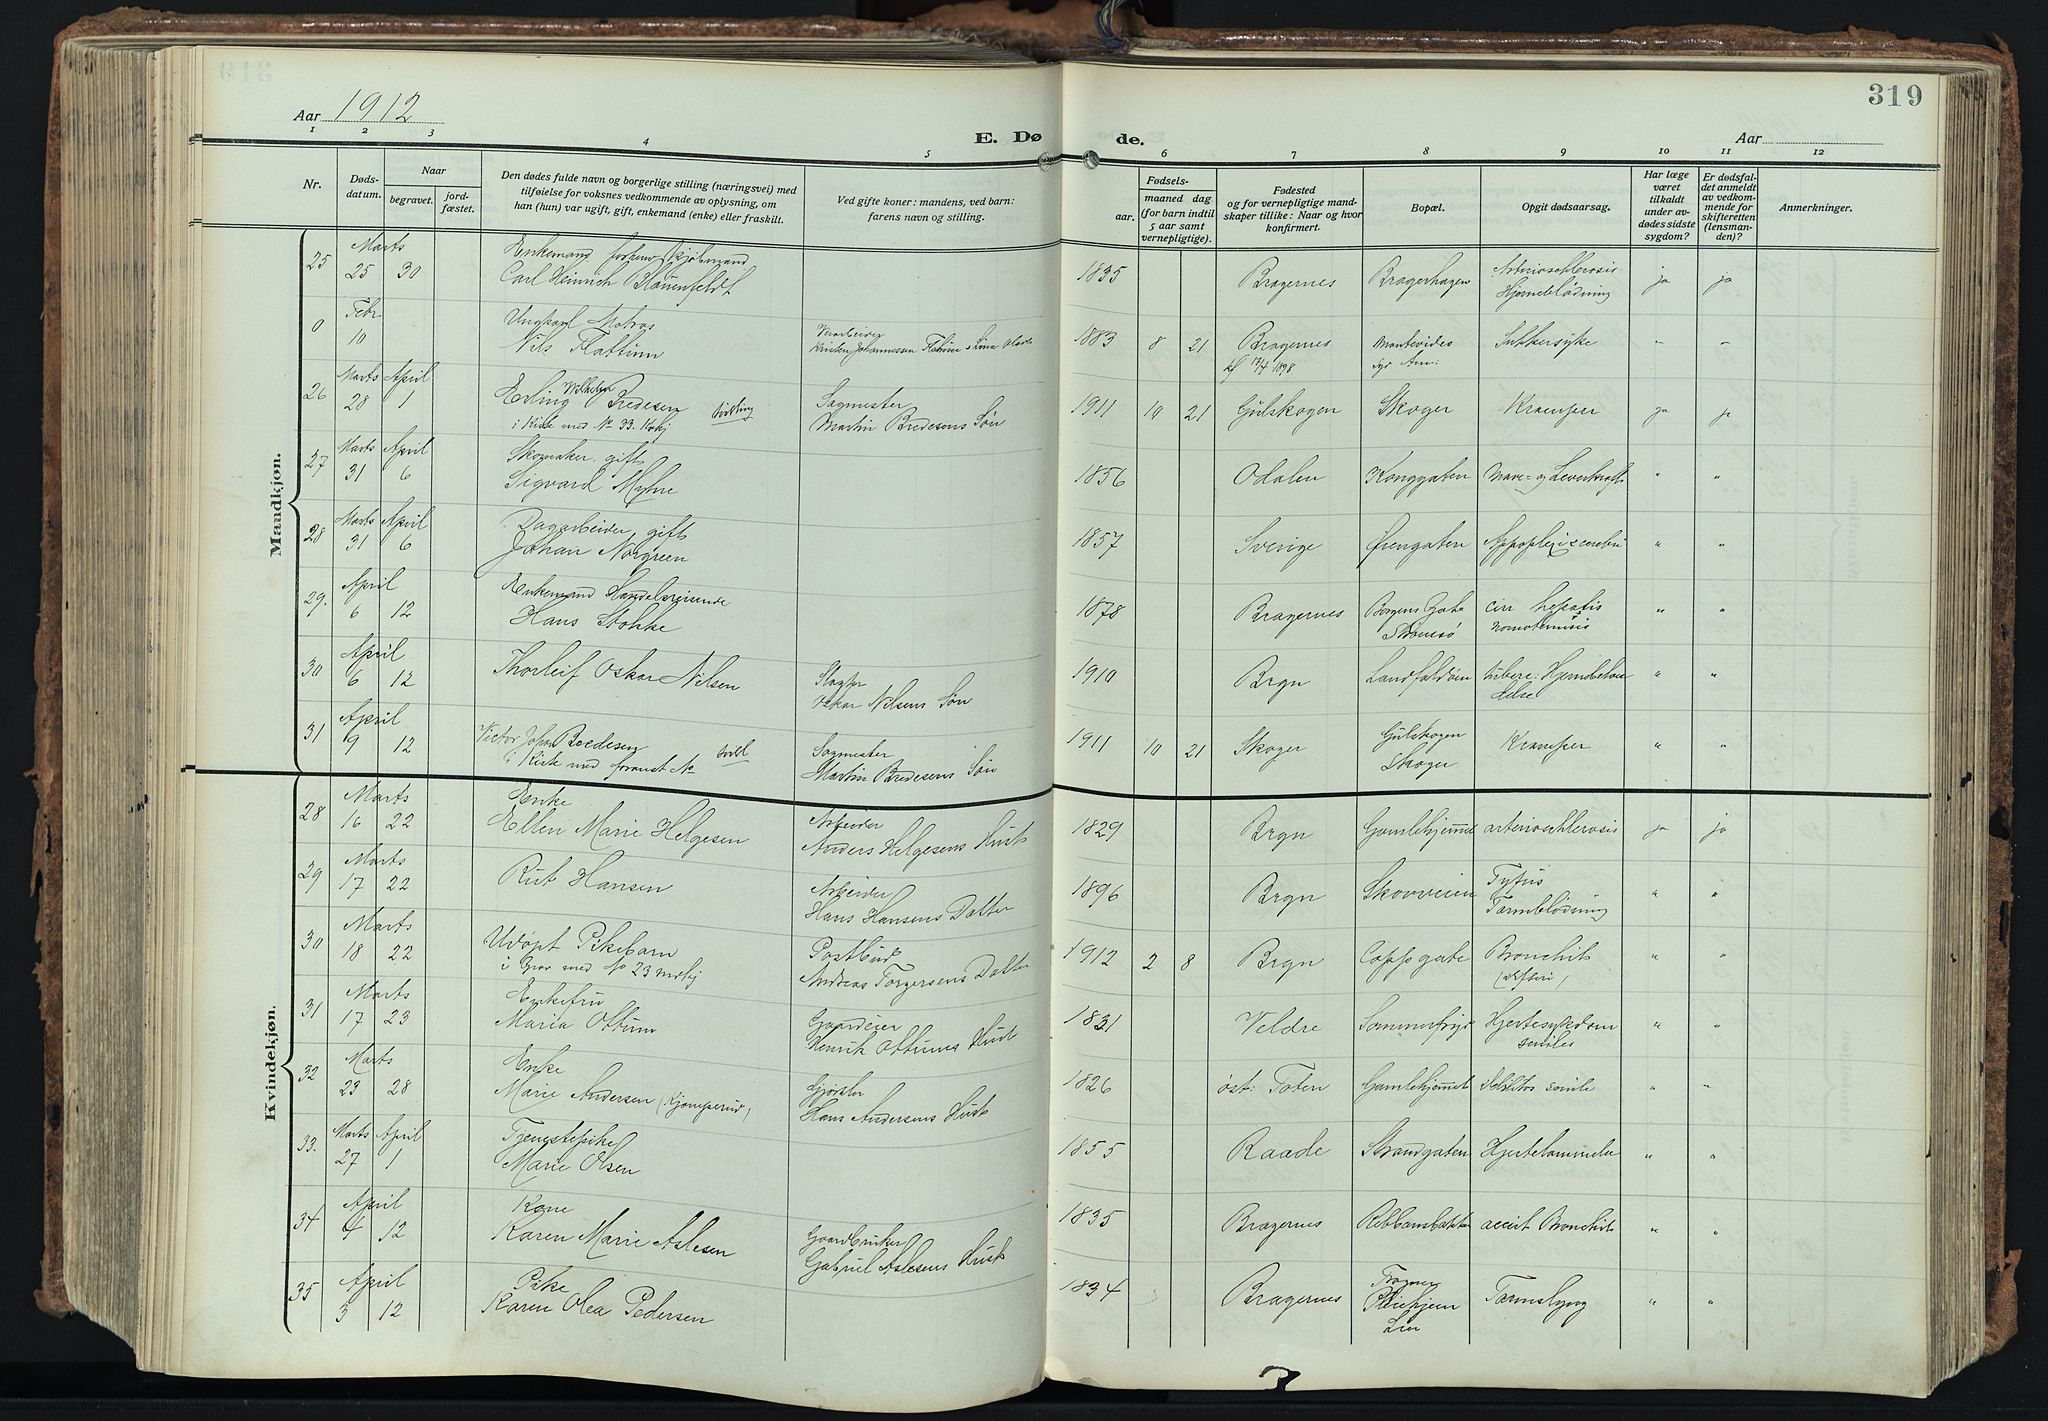 319
Aar 1912
E. Døde.
Aar
1 2 3 4 5 6 7 8 9 10 11 12
Nr.
Døds-
datum.
Naar
begravet.
jord-
fæstet.
Den dødes fulde navn og borgerlige stilling (næringsvei) med
tilføielse for voksnes vedkommende av oplysning, om
han (hun) var ugift, gift, enkemand (enke) eller fraskilt.
Ved gifte koner: mandens, ved barn:
farens navn og stilling.
Fødsels-
aar. maaned dag
(for barn indtil
5 aar samt
vernepligtige).
Fødested
og for vernepligtige mand-
skaper tillike: Naar og hvor
konfirmert.
Bopæl.
Opgit dødsaarsag.
Har læge
været
tilkaldt
under av-
dødes sidste
sygdom?
Er dødsfal-
det anmeldt
av vedkom-
mende for
skifteretten
(lensman-
den)?
Anmerkninger.
Mandkjøn.
25 Marts 25 30
Enkemand forhenv Kjøbmand
Carl Heinrich Blauenfeldt
1835 Bragernes Bragerhagen
Arteriosclerosis
Hjerneblödning ja ja
0 Febr 10
Ungkarl Matros
Nils Flattum
Kristen Johannessen
1883 8 21 Bragernes
1898
Montevideo
Syd Am:
Sukkersyke - -
26 Marts 28 April 1
Erling Wilhelm Bredesen tvilling
i Kiste med No 33. Kvkj
Sagmester
Martin Bredesens Sön
1911 10 21 Gulskogen Skoger Kramper ja ja
27 Marts 31 April 6
Skomaker, gift
Sigvard Myhre
1856 Odalen Konggaten Mave- og Leverkræft " "
28 Marts 31 April 6
Dagarbeider, gift
Johan Norgreen
1857 Sverige Örengaten Appoplexis cerebri " "
29. April 6 12
Enkemand Handelsreisende
Hans Stokke
1878 Bragernes
Borgens Gate
Strömsö
cirr hepatis " "
30 April 6 12
Thorleif Oskar Nilsen
Slagter
Oskar Nilsens Sön
1910 Brgn Landfaldöen
tuberc. Hjernebetæn
delse " "
31 April 9 12
Victor Johan Bredesen tvill
i Kiste med foranst No
Sagmester
Martin Bredesens Sön
1911 10 21 Skoger
Gulskogen
Skoger
Kramper " "
Kvindekjøn.
28 Marts 16 22
Enke
Ellen Marie Helgesen
Arbeider
Anders Helgesens Hust
1829 Brgn Gamlehjemmet arterioschlerosis ja ja
29 Marts 17 22
Rut Hansen
Arbeider
Hans Hansens Datter
1896 Brgn Skovveien
Tyfus
Tarmblödning " "
30 Marts 18 22
Udöpt Pikebarn
i Grav med No 23 Mdkj
Postbud
Andreas Torgersens Datter
1912 2 8 Brgn Coppsgate
Bronchit " "
31 Marts 17 23
Enkefru
Maria Ottum
Gaardeier
Henrik Ottums Hust
1831 Veldre Sommerfryd
Hjertesykdom
seniles " "
32 Marts 23 28
Enke
Marie Andersen (Kjemperud)
Gjörtler
Hans Andersens Hust
1826 öst: Toten Gamlehjemmet debilitas senile " "
33. Marts 27 April 1
Tjenestepike
Marie Olsen
1855 Raade Strandgaten Hjertelammelse " "
34 April 4 12
Kone
Karen Marie Aslesen
Gaardbruker
Gabriel Aslesens Hust
1835 Bragernes Ribbansbakken accut Bronchit " "
35 April 3 12
Pike
Karen Olea Pedersen
1834 Bragernes
Pleiehjem
Lier
Tarmslyng " "